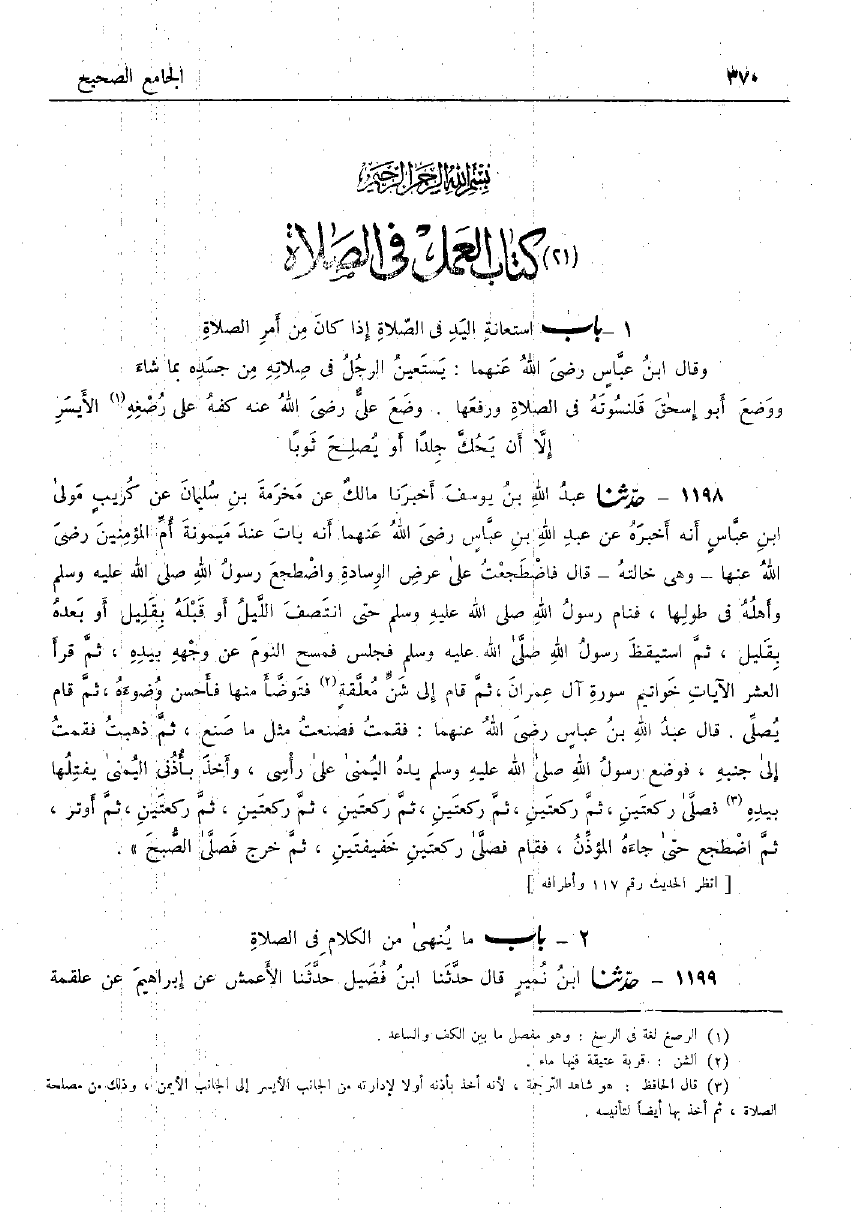 ٣٧٠ الجامع الصحيح
بسم الله الرحمن الرحيم
(٢١) كتاب العمل فى الصلاة
١ ـ باب استعانةِ اليَدِ فى الصَّلاةِ إذا كانَ مِن أَمرِ الصلاةِ
وقال ابنُ عبَّاسٍ رضىَ اللهُ عَنهما : يَستَعينُ الرجُلُ فى صِلاتِهِ مِن جسَدِه بما شاءَ
ووَضعَ أَبو إسحٰقَ قَلنسُوتَهُ فى الصلاةِ ورفعَها . وضَعَ علىٌّ رضىَ اللهُ عنه كفهُ على رُصْغِهِ(١) الأَيسَرِ
إلَّا أَن يَحُكَّ جِلدًا أَو يُصلِحَ ثَوبًا
١١٩٨ ـ حدّثنا عبدُ اللهِ بنُ يوسفَ أَخبرَنا مالكٌ عن مَخرَمةَ بنِ سُليمانَ عن كُرَيبٍ مَولىٰ
ابنِ عبَّاسٍ أَنه أَخبرَهُ عن عبدِ اللهِ بنِ عبَّاسٍ رضىَ اللهُ عَنهما أَنه باتَ عندَ مَيمونةَ أُمِّ المؤمِنينَ رضىَ
اللهُ عنها ـ وهى خالتهُ ـ قال فاضْطَجعْتُ علىٰ عرضِ الوِسادةِ واضْطجعَ رسولُ اللهِ صلى الله عليه وسلم
وأَهلُهُ فى طولِها ، فنام رسولُ اللهِ صلى الله عليهِ وسلم حتى انتَصفَ اللَّيلُ أَو قَبْلَهُ بِقَلِيلٍ أَو بَعدهُ
بِقَليل ، ثمَّ استيقظَ رسولُ اللهِ صَلَّىٰ الله عليه وسلم فجلس فمسح النومَ عن وجْههِ بيدِهِ ، ثمَّ قرأَ
العشر الآياتِ خَواتيم سورةِ آل عِمرانَ ، ثمَّ قام إلى شَنٍّ مُعلَّقةٍ(٢) فتَوضَّأَ منها فأَحسن وُضوءَهُ ، ثمَّ قام
يُصلِّى . قال عبدُ اللهِ بنُ عباسٍ رضىَ اللهُ عنهما : فقمتُ فصنعتُ مثل ما صَنع ، ثمَّ ذهبتُ فقمتُ
إلىٰ جنبهِ ، فوضع رسولُ اللهِ صلىٰ اللهُ عليهِ وسلم يدهُ اليُمنىٰ علىٰ رأْسِى ، وأَخذَ بأُذُنى اليُمنىٰ يفتِلُها
بيدِهِ(٣) فصلَّىٰ ركعتَينِ ، ثمَّ ركعتَينِ ، ثمَّ ركعتَينِ ، ثمَّ ركعتَينِ ، ثمَّ ركعتَينِ ، ثمَّ ركعتَينِ ، ثمَّ أَوتر ،
ثمَّ اضْطجع حتىٰ جاءَهُ المؤذِّنُ ، فقام فصلَّىٰ ركعتَينِ خَفيفتَينِ ، ثمَّ خرج فَصلَّىٰ الصُّبحَ » .
[ انظر الحديث رقم ١١٧ وأطرافه ]
٢ ـ باب ما يُنهىٰ من الكلامِ فى الصلاةِ
١١٩٩ ـ حدّثنا ابنُ نُميرٍ قال حدَّثَنا ابنُ فُضَيل حدَّثَنا الأَعمش عن إبراهيمَ عن علقمة
(١) الرصغ لغة فى الرسغ : وهو مفصل ما بين الكف والساعد .
(٢) الشن : قربة عتيقة فيها ماء .
(٣) قال الحافظ : هو شاهد الترجمة ، لأنه أخذ بأذنه أولا لإدارته من الجانب الأيسر إلى الجانب الأيمن ، وذلك من مصلحة
الصلاة ، ثم أخذ بها أيضاً لتأنيسه .